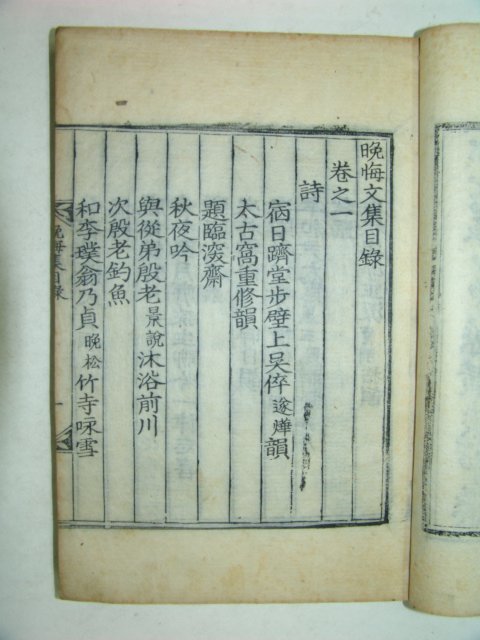 晩悔文集目錄
卷之一
詩
宿日躋堂步壁上吳倅遂燁韻
太古窩重修韻
題臨溪齋
秋夜吟
與從弟殷老景說沐浴前川
次殷老釣魚
和李璞翁乃貞晩松竹寺咏雪
晩悔集目錄
一